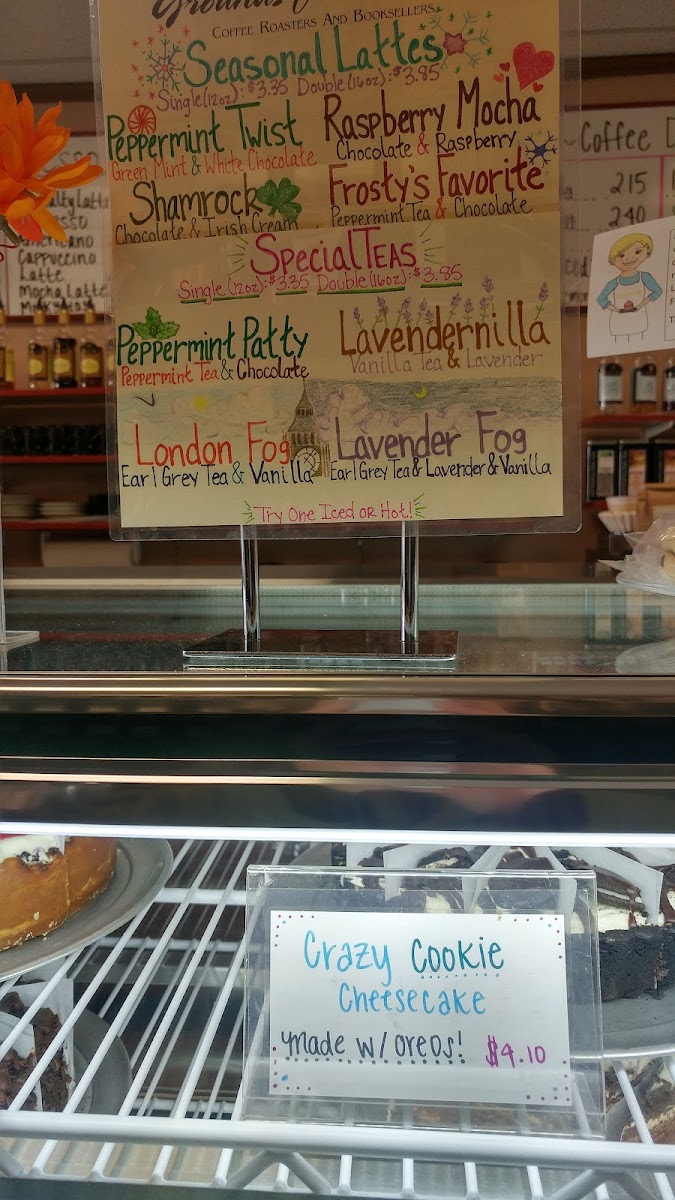 Grounds
Coffee Roasters And Booksellers
Seasonal Lattes
Single (12oz): $3.35 Double (16oz): $3.85
Peppermint Twist
Green Mint & White Chocolate
Raspberry Mocha
Chocolate & Raspberry
Shamrock
Chocolate & Irish Cream
Frosty's Favorite
Peppermint Tea & Chocolate
SpecialTeas
Single (12oz): $3.35 Double (16oz): $3.85
Peppermint Patty
Peppermint Tea & Chocolate
Lavendernilla
Vanilla Tea & Lavender
London Fog
Earl Grey Tea & Vanilla
Lavender Fog
Earl Grey Tea & Lavender & Vanilla
Try One Iced or Hot!
Americano
Cappuccino
Latte
Mocha Latte
Coffee
215
240
Crazy Cookie
Cheesecake
made w/ oreos! $4.10